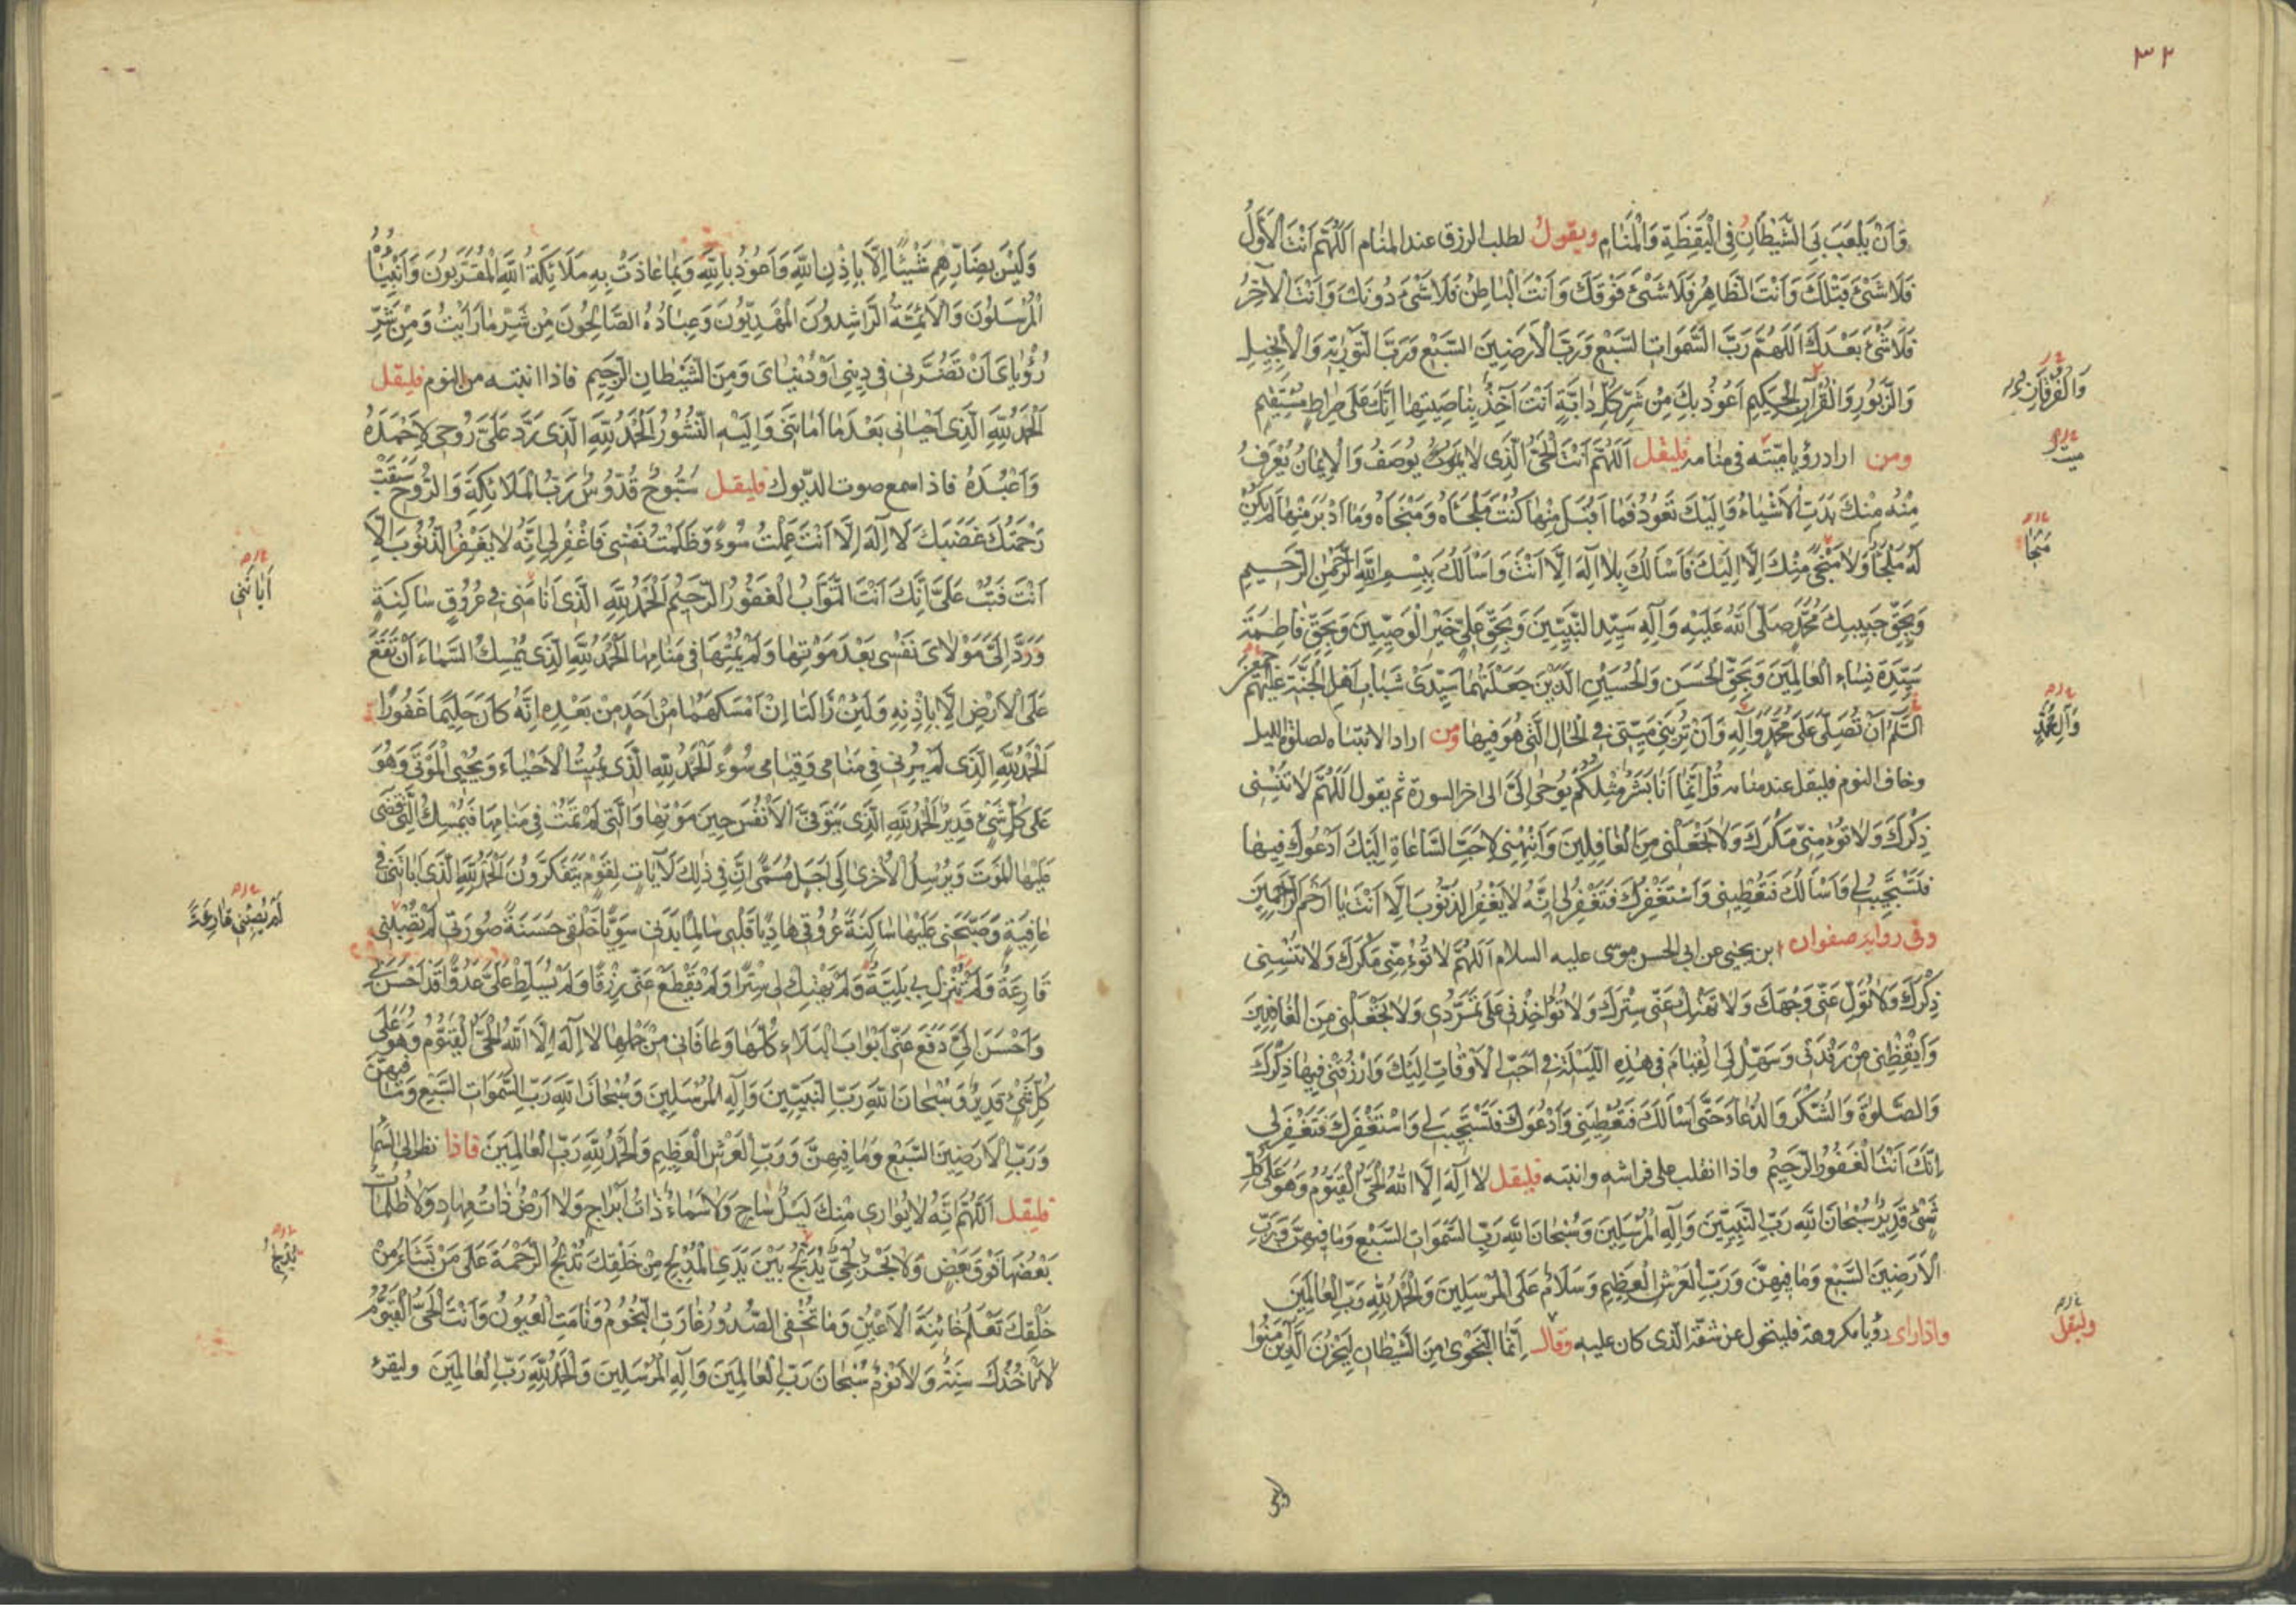 ٣٢
وَاَنْ يَلْعَبَ بِيَ الشَّيْطَانُ فِي الْيَقِظَةِ وَالْمَنَامِ ويقول لطلب الرزق عند المنام اَللّٰهُمَّ اَنْتَ الْاَوَّلُ
فَلَا شَيْئَ قَبْلَكَ وَاَنْتَ الظَّاهِرُ فَلَا شَيْئَ فَوْقَكَ وَاَنْتَ الْبَاطِنُ فَلَا شَيْئَ دُونَكَ وَاَنْتَ الْآخِرُ
فَلَا شَيْئَ بَعْدَكَ اَللّٰهُمَّ رَبَّ السَّمَوَاتِ السَّبْعِ وَرَبَّ الْاَرَضِينَ السَّبْعِ وَرَبَّ التَّوْرٰيةِ وَالْاِنْجِيلِ
وَالزَّبُورِ وَالْقُرْآنِ الْحَكِيمِ اَعُوذُ بِكَ مِنْ شَرِّ كُلِّ دَابَّةٍ اَنْتَ آخِذٌ بِنَاصِيَتِهَا اِنَّكَ عَلَى صِرَاطٍ مُسْتَقِيمٍ
ومن اراد رؤيا ميّته في منامه فليقل اَللّٰهُمَّ اَنْتَ الْحَيُّ الَّذِى لَا يَمُوتُ يُوصَفُ وَالْاِيمَانُ يُعْرَفُ
مِنْهُ مِنْكَ بَدَتِ الْاَشْيَاءُ وَاِلَيْكَ تَعُودُ فَمَا اَقْبَلَ مِنْهَا كُنْتَ مَلْجَاَهُ وَمَنْجَاهُ وَمَا اَدْبَرَ مِنْهَا لَمْ يَكُنْ
لَهُ مَلْجَاٌ وَلَا مَنْجَى مِنْكَ اِلَّا اِلَيْكَ فَاَسْاَلُكَ بِلَا اِلَهَ اِلَّا اَنْتَ وَاَسْاَلُكَ بِبِسْمِ اللهِ الرَّحْمٰنِ الرَّحِيمِ
وَبِحَقِّ حَبِيبِكَ مُحَمَّدٍ صَلَّى اللهُ عَلَيْهِ وَآلِهِ سَيِّدِ النَّبِيِّينَ وَبِحَقِّ عَلِيٍّ خَيْرِ الْوَصِيِّينَ وَبِحَقِّ فَاطِمَةَ
سَيِّدَةِ نِسَاءِ الْعَالَمِينَ وَبِحَقِّ الْحَسَنِ وَالْحُسَيْنِ الَّذَيْنِ جَعَلْتَهُمَا سَيِّدَىْ شَبَابِ اَهْلِ الْجَنَّةِ عَلَيْهِمُ
السَّلَامُ اَنْ تُصَلِّىَ عَلَى مُحَمَّدٍ وَآلِهِ وَاَنْ تُرِيَنِي مَيِّتِي فِي الْحَالِ الَّتِي هُوَ فِيهَا ومن اراد الانتباه لصلوة الليل
وخاف النوم فليقل عند منامه قُلْ اِنَّمَا اَنَا بَشَرٌ مِثْلُكُمْ يُوحٰى اِلَىَّ الى اخر السورة ثم يقول اَللّٰهُمَّ لَا تُنْسِنِى
ذِكْرَكَ وَلَا تُؤْمِنِّى مَكْرَكَ وَلَا تَجْعَلْنِى مِنَ الْغَافِلِينَ وَاَنْبِهْنِى لِاَحَبِّ السَّاعَاتِ اِلَيْكَ اَدْعُوكَ فِيهَا
فَتَسْتَجِيبُ لِى وَاَسْاَلُكَ فَتُعْطِينِى وَاَسْتَغْفِرُكَ فَتَغْفِرُ لِى اِنَّهُ لَا يَغْفِرُ الذُّنُوبَ اِلَّا اَنْتَ يَا اَرْحَمَ الرَّاحِمِينَ
وفى رواية صفوان ابن يحيى عن ابى الحسن موسى عليه السلام اَللّٰهُمَّ لَا تُؤْمِنِّى مَكْرَكَ وَلَا تُنْسِنِى
ذِكْرَكَ وَلَا تُوَلِّ عَنِّى وَجْهَكَ وَلَا تَهْتِكْ عَنِّى سِتْرَكَ وَلَا تُؤَاخِذْنِى عَلَى تَمَرُّدِى وَلَا تَجْعَلْنِى مِنَ الْغَافِلِينَ
وَاَيْقِظْنِى مِنْ رَقْدَتِى وَسَهِّلْ لِىَ الْقِيَامَ فِى هٰذِهِ اللَّيْلَةِ فِى اَحَبِّ الْاَوْقَاتِ اِلَيْكَ وَارْزُقْنِى فِيهَا ذِكْرَكَ
وَالصَّلٰوةَ وَالشُّكْرَ وَالدُّعَاءَ حَتَّى اَسْاَلَكَ فَتُعْطِيَنِى وَاَدْعُوَكَ فَتَسْتَجِيبَ لِى وَاَسْتَغْفِرَكَ فَتَغْفِرَ لِى
اِنَّكَ اَنْتَ الْغَفُورُ الرَّحِيمُ واذا انقلب على فراشه وانتبه فليقل لَا اِلَهَ اِلَّا اللهُ الْحَىُّ الْقَيُّومُ وَهُوَ عَلَى كُلِّ
شَىْءٍ قَدِيرٌ سُبْحَانَ اللهِ رَبِّ النَّبِيِّينَ وَآلِهِ الْمُرْسَلِينَ وَسُبْحَانَ اللهِ رَبِّ السَّمَوَاتِ السَّبْعِ وَمَا فِيهِنَّ وَرَبِّ
الْاَرَضِينَ السَّبْعِ وَمَا فِيهِنَّ وَرَبِّ الْعَرْشِ الْعَظِيمِ وَسَلَامٌ عَلَى الْمُرْسَلِينَ وَالْحَمْدُ لِلهِ رَبِّ الْعَالَمِينَ
واذا راى رؤيا مكروهة فليتحول عن شقه الذى كان عليه وقال اِنَّمَا النَّجْوٰى مِنَ الشَّيْطَانِ لِيَحْزُنَ الَّذِينَ آمَنُوا
وَالْفُرْقَانِ
مَنْجَا
وَآلِ مُحَمَّدٍ
وليقل
وليس
وَلَيْسَ بِضَارِّهِمْ شَيْئًا اِلَّا بِاِذْنِ اللهِ وَاَعُوذُ بِاللهِ وَبِمَا عَاذَتْ بِهِ مَلَائِكَةُ اللهِ الْمُقَرَّبُونَ وَاَنْبِيَاؤُهُ
الْمُرْسَلُونَ وَالْاَئِمَّةُ الرَّاشِدُونَ الْمَهْدِيُّونَ وَعِبَادُهُ الصَّالِحُونَ مِنْ شَرِّ مَا رَاَيْتُ وَمِنْ شَرِّ
رُؤْيَاىَ اَنْ تَضُرَّنِى فِى دِينِى اَوْ دُنْيَاىَ وَمِنَ الشَّيْطَانِ الرَّجِيمِ فاذا انتبه من النوم فليقل
اَلْحَمْدُ لِلهِ الَّذِى اَحْيَانِى بَعْدَ مَا اَمَاتَنِى وَاِلَيْهِ النُّشُورُ اَلْحَمْدُ لِلهِ الَّذِى رَدَّ عَلَىَّ رُوحِى لِاَحْمَدَهُ
وَاَعْبُدَهُ فاذا سمع صوت الديوك فليقل سُبُّوحٌ قُدُّوسٌ رَبُّ الْمَلَائِكَةِ وَالرُّوحِ سَبَقَتْ
رَحْمَتُكَ غَضَبَكَ لَا اِلَهَ اِلَّا اَنْتَ عَمِلْتُ سُوءً وَظَلَمْتُ نَفْسِى فَاغْفِرْ لِى اِنَّهُ لَا يَغْفِرُ الذُّنُوبَ اِلَّا
اَنْتَ فَتُبْ عَلَىَّ اِنَّكَ اَنْتَ التَّوَّابُ الْغَفُورُ الرَّحِيمُ اَلْحَمْدُ لِلهِ الَّذِى اَنَامَنِى فِى عُرُوقٍ سَاكِنَةٍ
وَرَدَّ اِلَىَّ مَوْلَاىَ نَفْسِى بَعْدَ مَوْتِهَا وَلَمْ يُمِتْهَا فِى مَنَامِهَا اَلْحَمْدُ لِلهِ الَّذِى يُمْسِكُ السَّمَاءَ اَنْ تَقَعَ
عَلَى الْاَرْضِ اِلَّا بِاِذْنِهِ وَلَئِنْ زَالَتَا اِنْ اَمْسَكَهُمَا مِنْ اَحَدٍ مِنْ بَعْدِهِ اِنَّهُ كَانَ حَلِيمًا غَفُورًا
اَلْحَمْدُ لِلهِ الَّذِى لَمْ يُرِنِى فِى مَنَامِى وَقِيَامِى سُوءً اَلْحَمْدُ لِلهِ الَّذِى يُمِيتُ الْاَحْيَاءَ وَيُحْيِى الْمَوْتٰى وَهُوَ
عَلٰى كُلِّ شَىْءٍ قَدِيرٌ اَلْحَمْدُ لِلهِ الَّذِى يَتَوَفَّى الْاَنْفُسَ حِينَ مَوْتِهَا وَالَّتِى لَمْ تَمُتْ فِى مَنَامِهَا فَيُمْسِكُ الَّتِى قَضٰى
عَلَيْهَا الْمَوْتَ وَيُرْسِلُ الْاُخْرٰى اِلٰى اَجَلٍ مُسَمًّى اِنَّ فِى ذٰلِكَ لَآيَاتٍ لِقَوْمٍ يَتَفَكَّرُونَ اَلْحَمْدُ لِلهِ الَّذِى اَبَاتَنِى فِى
عَافِيَةٍ وَصَبَّحَنِى عَلَيْهَا سَاكِنَةً عُرُوقِى هَادِيًا قَلْبِى سَالِمًا بَدَنِى سَوِيًّا خَلْقِى حَسَنَةً صُورَتِى لَمْ تُصِبْنِى
قَارِعَةٌ وَلَمْ تَنْزِلْ بِى بَلِيَّةٌ وَلَمْ يَهْتِكْ لِى سِتْرًا وَلَمْ يَقْطَعْ عَنِّى رِزْقًا وَلَمْ يُسَلِّطْ عَلَىَّ عَدُوًّا قَدْ اَحْسَنَ بِى
وَاَحْسَنَ اِلَىَّ دَفَعَ عَنِّى اَبْوَابَ الْبَلَاءِ كُلَّهَا وَعَافَانِى مِنْ جُمَلِهَا لَا اِلَهَ اِلَّا اللهُ الْحَىُّ الْقَيُّومُ وَهُوَ عَلٰى
كُلِّ شَىْءٍ قَدِيرٌ وَسُبْحَانَ اللهِ رَبِّ النَّبِيِّينَ وَآلِهِ الْمُرْسَلِينَ وَسُبْحَانَ اللهِ رَبِّ السَّمَوَاتِ السَّبْعِ وَمَا فِيهِنَّ
وَرَبِّ الْاَرَضِينَ السَّبْعِ وَمَا فِيهِنَّ وَرَبِّ الْعَرْشِ الْعَظِيمِ وَالْحَمْدُ لِلهِ رَبِّ الْعَالَمِينَ فاذا نظر الى السماء
فليقل اَللّٰهُمَّ اِنَّهُ لَا يُوَارِى مِنْكَ لَيْلٌ سَاجٍ وَلَا سَمَاءٌ ذَاتُ اَبْرَاجٍ وَلَا اَرْضٌ ذَاتُ مِهَادٍ وَلَا ظُلُمَاتٌ
بَعْضُهَا فَوْقَ بَعْضٍ وَلَا بَحْرٌ لُجِّىٌّ يُدْلِجُ بَيْنَ يَدَىِ الْمُدْلِجِ مِنْ خَلْقِكَ تُدْلِجُ الرَّحْمَةَ عَلٰى مَنْ تَشَاءُ مِنْ
خَلْقِكَ تَعْلَمُ خَائِنَةَ الْاَعْيُنِ وَمَا تُخْفِى الصُّدُورُ غَارَتِ النُّجُومُ وَنَامَتِ الْعُيُونُ وَاَنْتَ الْحَىُّ الْقَيُّومُ
لَا تَاْخُذُكَ سِنَةٌ وَلَا نَوْمٌ سُبْحَانَ رَبِّ الْعَالَمِينَ وَآلِهِ الْمُرْسَلِينَ وَالْحَمْدُ لِلهِ رَبِّ الْعَالَمِينَ وليقرء
لَمْ يُصِبْنِى قَارِعَةٌ